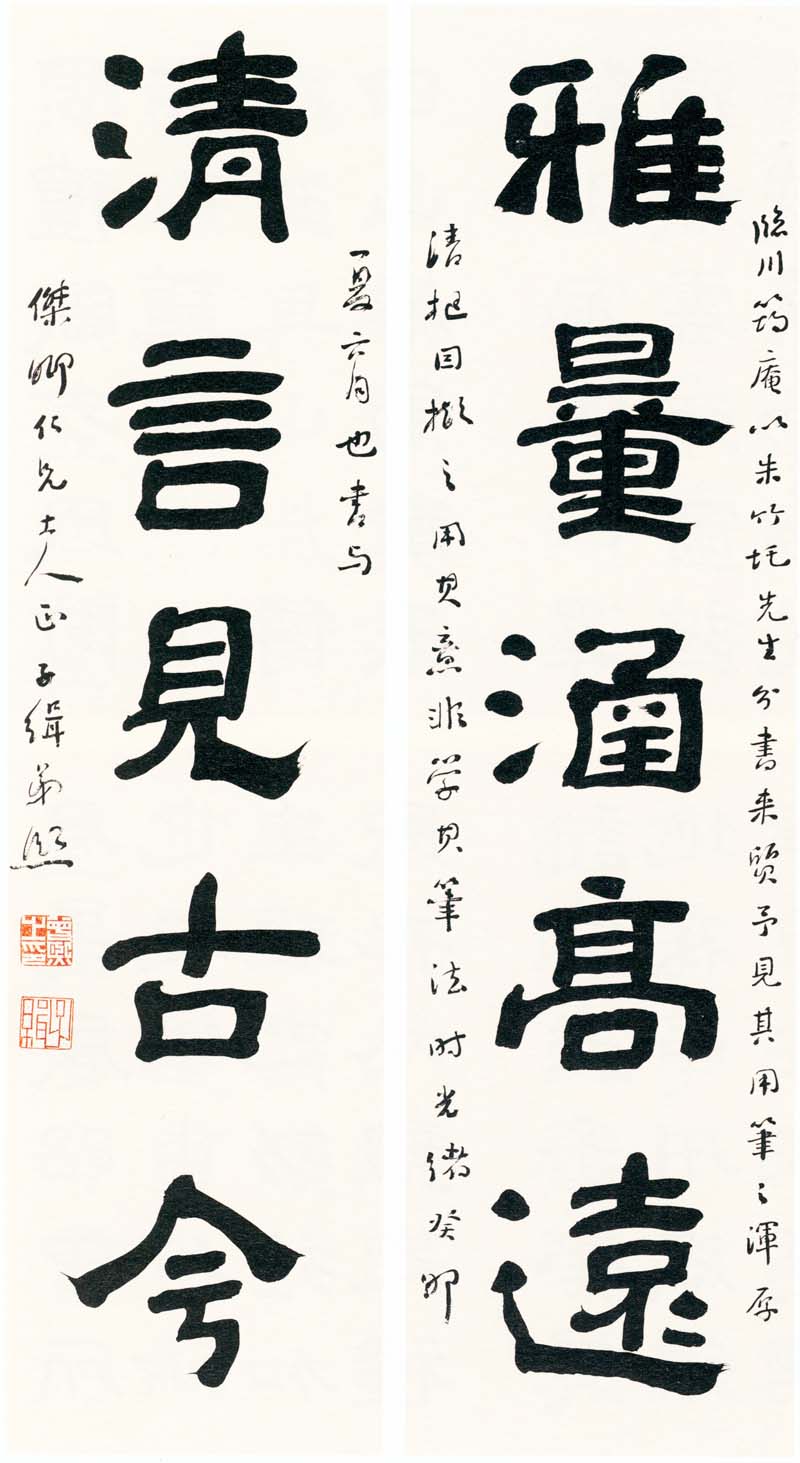 雅量涵高遠
清言見古今
臨川筠庵以朱竹垞先生分書來質予見其用筆之渾厚
清挺因擬之用其意非學其筆法時光緒癸卯
夏六月也書与
傑卿仁兄大人正子緝弟熙